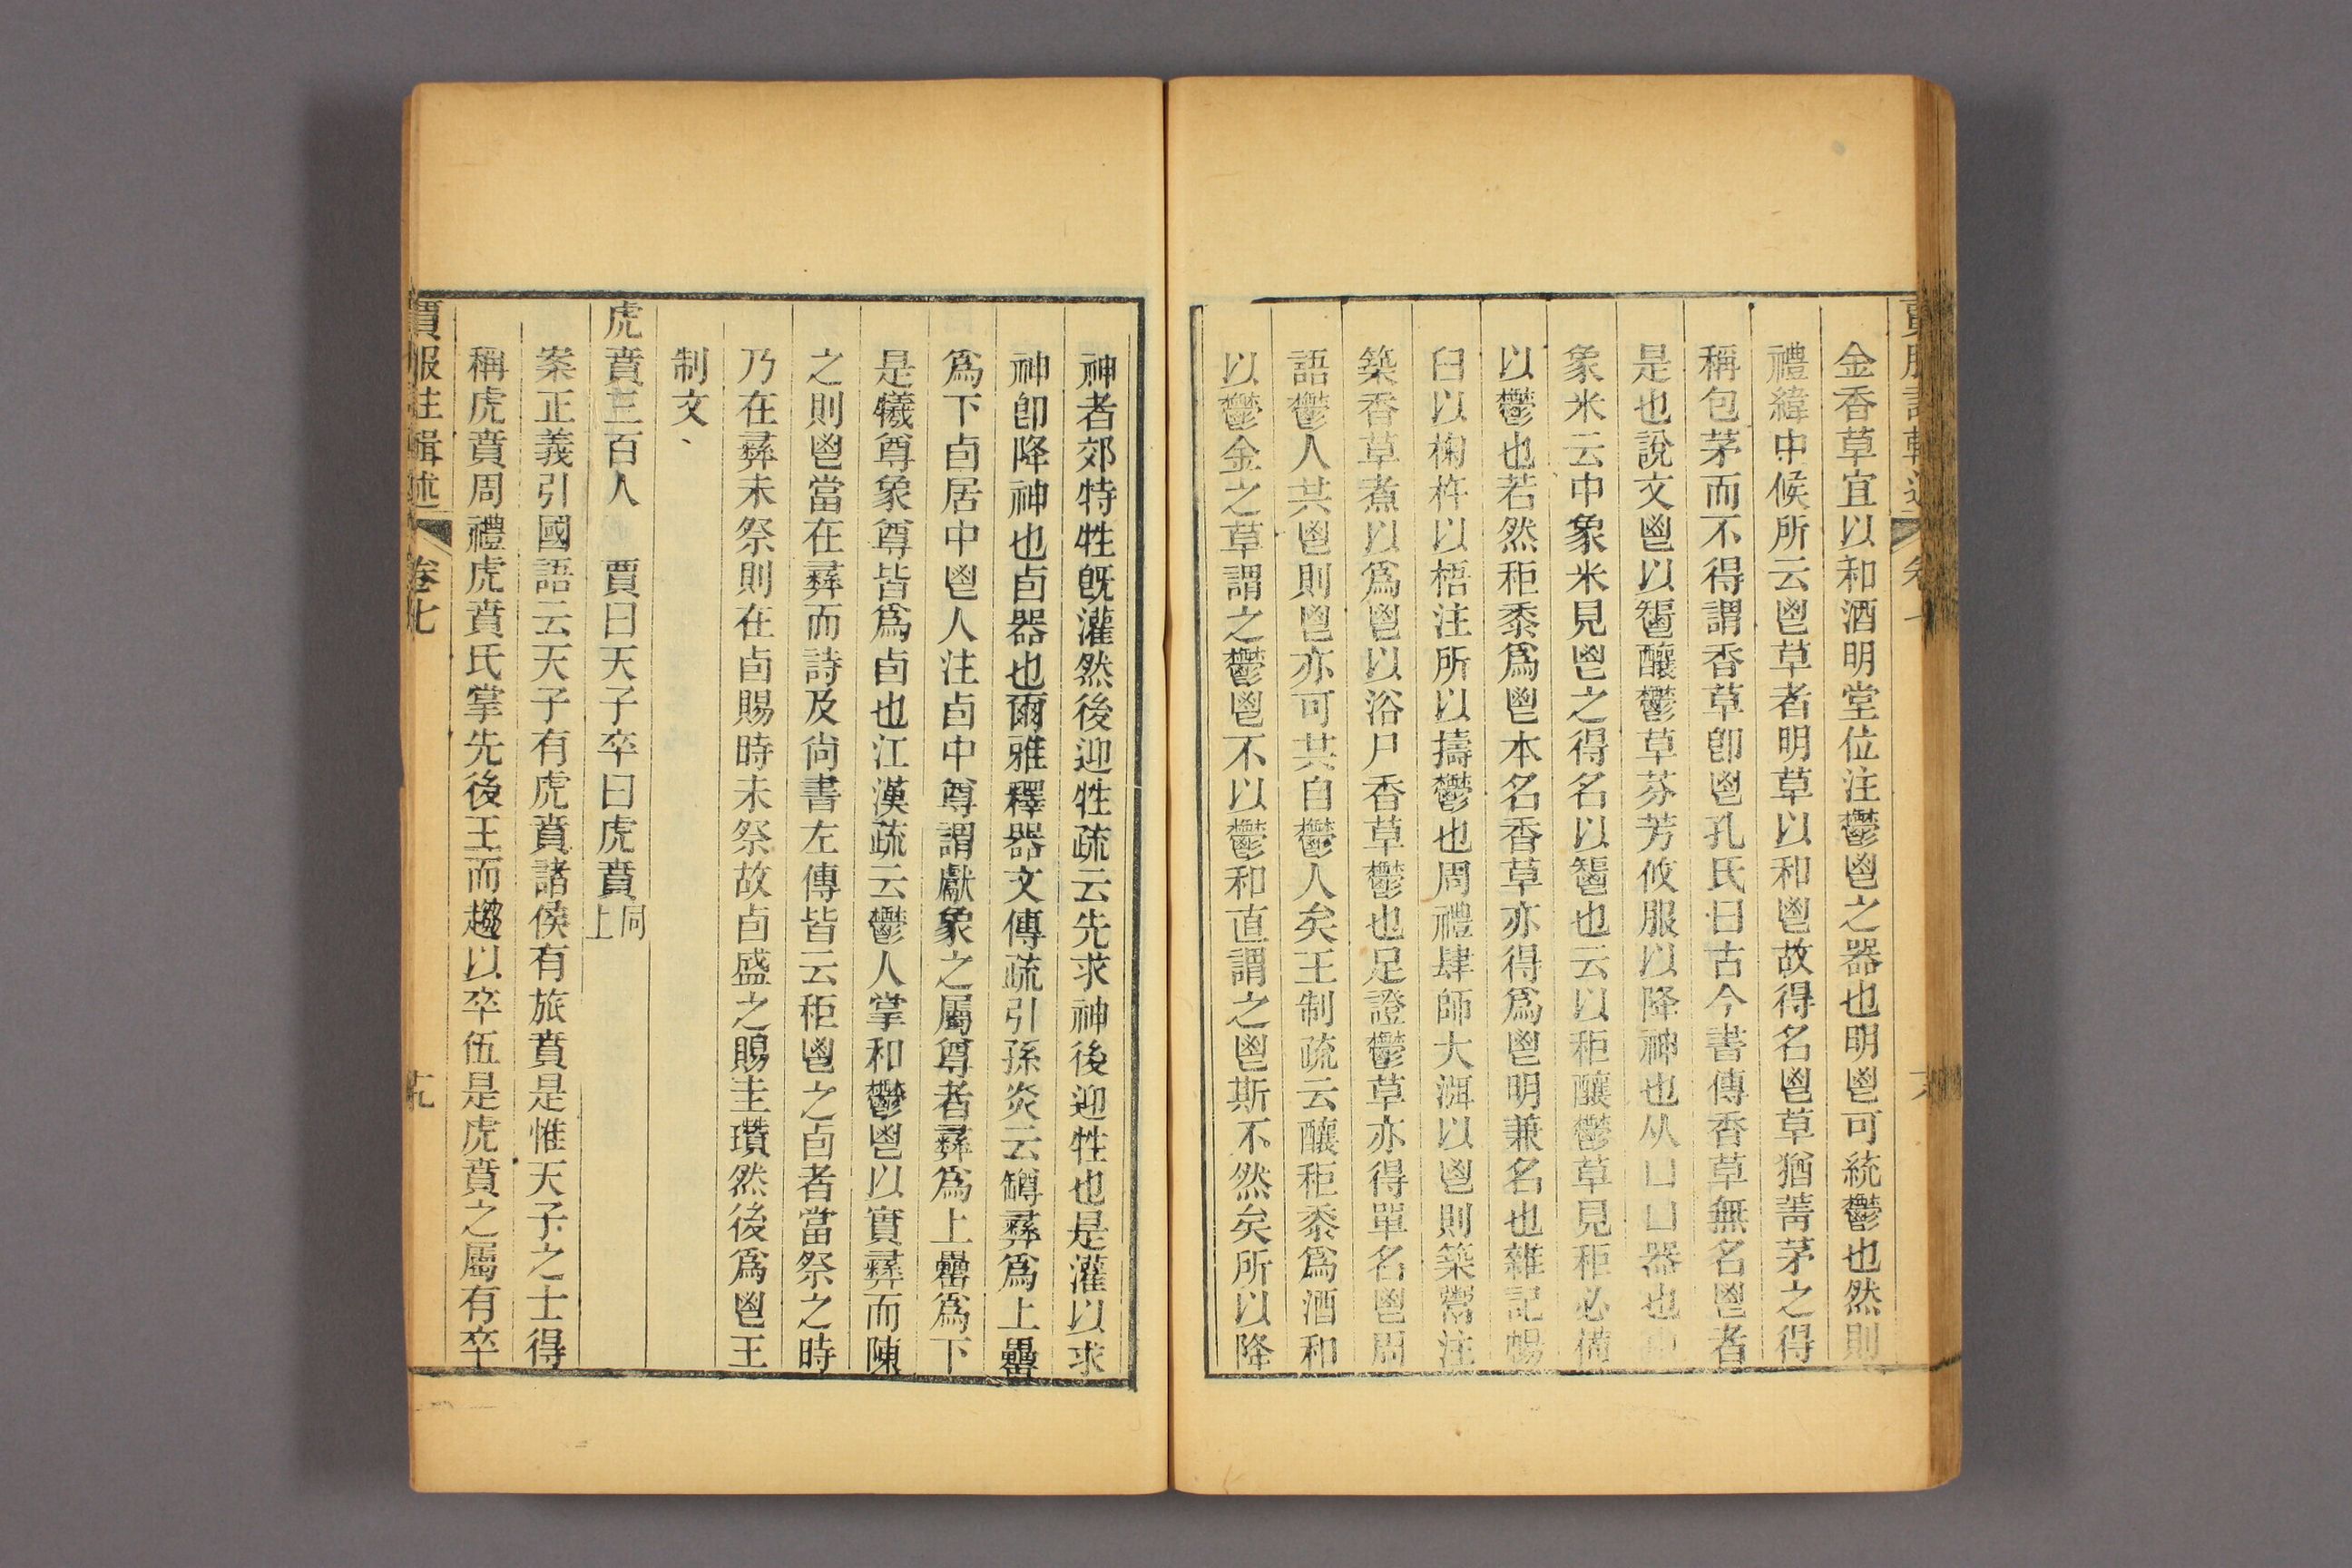 金香草宜以和酒明堂位注鬱鬯之器也明鬯可統鬱也然則
禮緯中候所云鬯草者明草以和鬯故得名鬯草猶菁茅之得
稱包茅而不得謂香草卽鬯孔氏曰古今書傳香草無名鬯者
是也說文鬯以䰜釀鬱草芬芳攸服以降神也从凵凵器也
象米云中象米見鬯之得名以䰜也云以秬釀鬱草見秬必備
以鬱也若然秬黍爲鬯本名香草亦得爲鬯明兼名也雜記暢
臼以椈杵以梧注所以擣鬱也周禮肆師大渳以鬯則築鬻注
築香草煮以爲鬯以浴尸香草鬱也足證鬱草亦得單名鬯周
語鬱人共鬯則鬯亦可共自鬱人矣王制疏云釀秬黍爲酒和
以鬱金之草謂之鬱鬯不以鬱和直謂之鬯斯不然矣所以降
神者郊特牲旣灌然後迎牲疏云先求神後迎牲也是灌以求
神卽降神也卣器也爾雅釋器文傳疏引孫炎云罇彞爲上罍
爲下卣居中鬯人注卣中尊謂獻象之屬尊者彞爲上罍爲下
是犧尊象尊皆爲卣也江漢疏云鬱人掌和鬱鬯以實彞而陳
之則鬯當在彞而詩及尙書左傳皆云秬鬯之卣者當祭之時
乃在彞未祭則在卣賜時未祭故卣盛之賜圭瓚然後爲鬯王
制文、
虎賁三百人　賈曰天子卒曰虎賁同上
案正義引國語云天子有虎賁諸侯有旅賁是惟天子之士得
稱虎賁周禮虎賁氏掌先後王而趨以卒伍是虎賁之屬有卒
賈服注輯述　卷七　十九